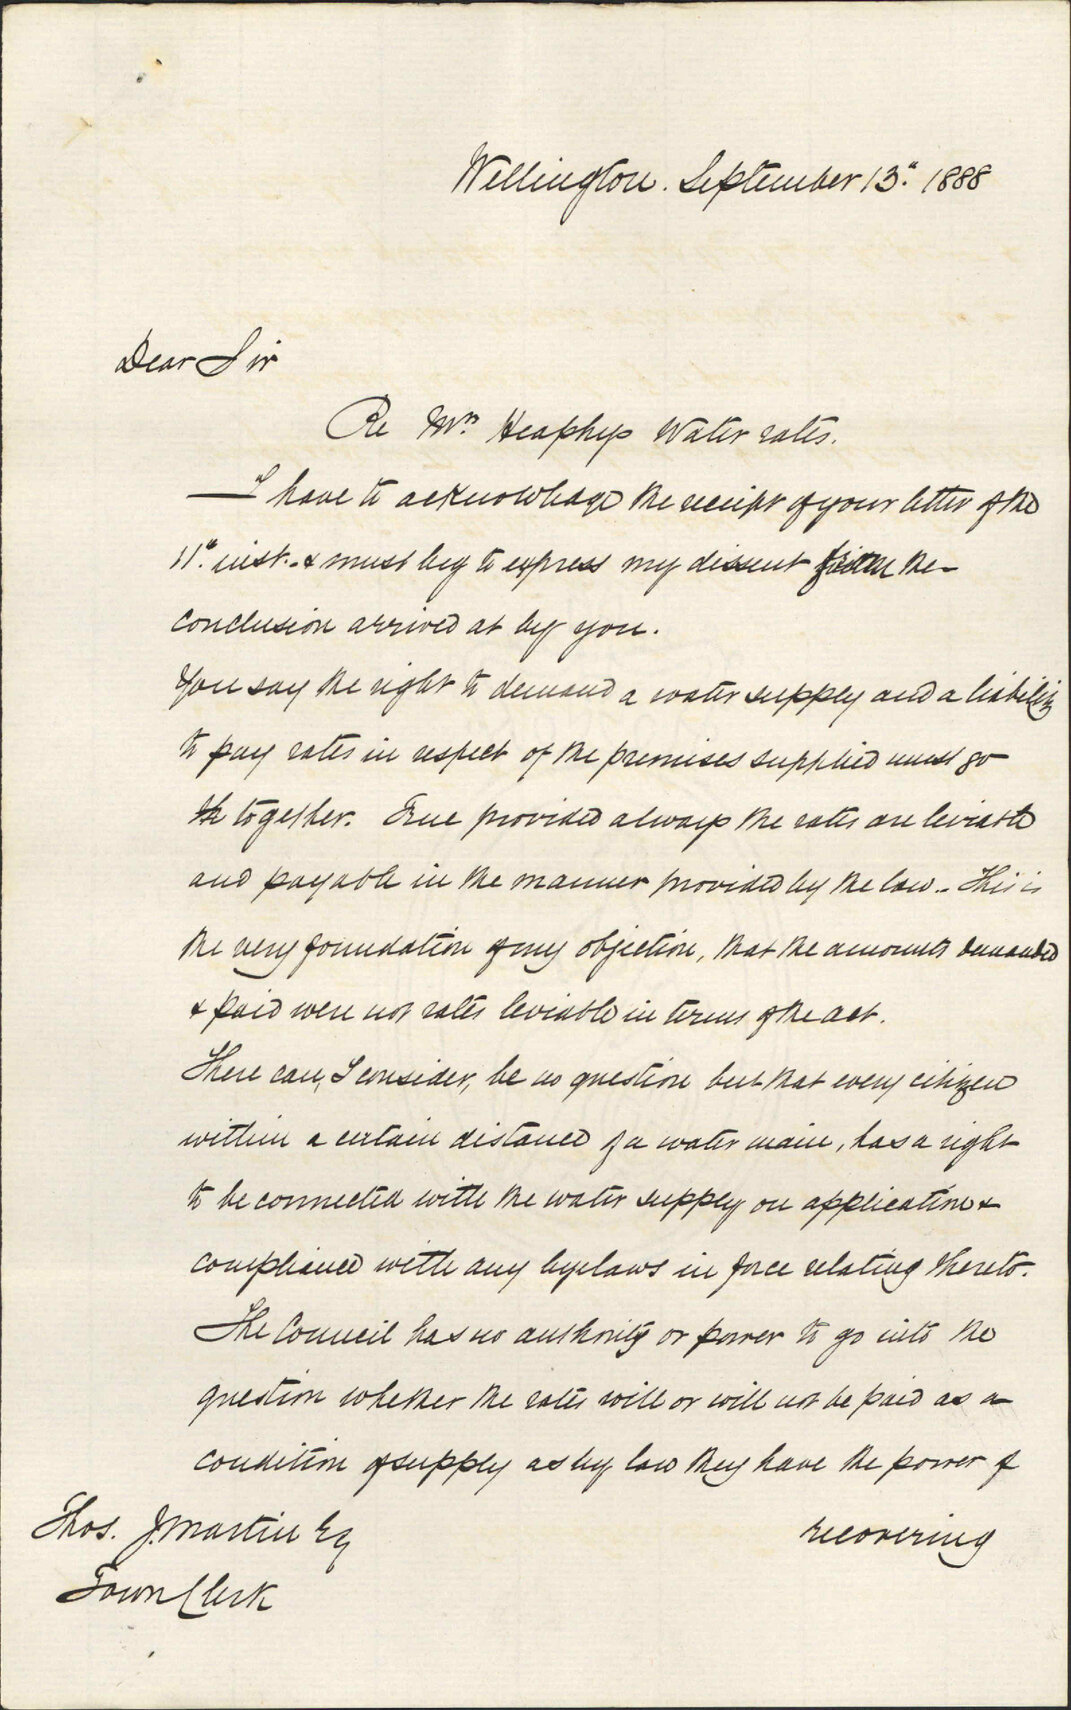 Wellington. September 13". 1888
Dear Sir
Re Mrs Heaphys Water rates.
I have to acknowledge the receipt of your letter of the
11" inst. - & must beg to express my dissent from the
conclusion arrived at by you.
You say the right to demand a water supply and a liability
to pay rates in respect of the premises supplied must go
th together. True provided always the rates are leviable
and payable in the manner provided by the law - This is
the very foundation of my objection, that the amounts demanded
& paid were not rates leviable in terms of the act.
There can, I consider, be no question but that every citizen
within a certain distance of a water main, has a right
to be connected with the water supply on application &
compliance with any byelaws in force relating thereto.
The Council has no authority or power to go into the
question whether the rates will or will not be paid as a
condition of supply as by law they have the power of
recovering
Thos. J. Martin Esq
Town Clerk